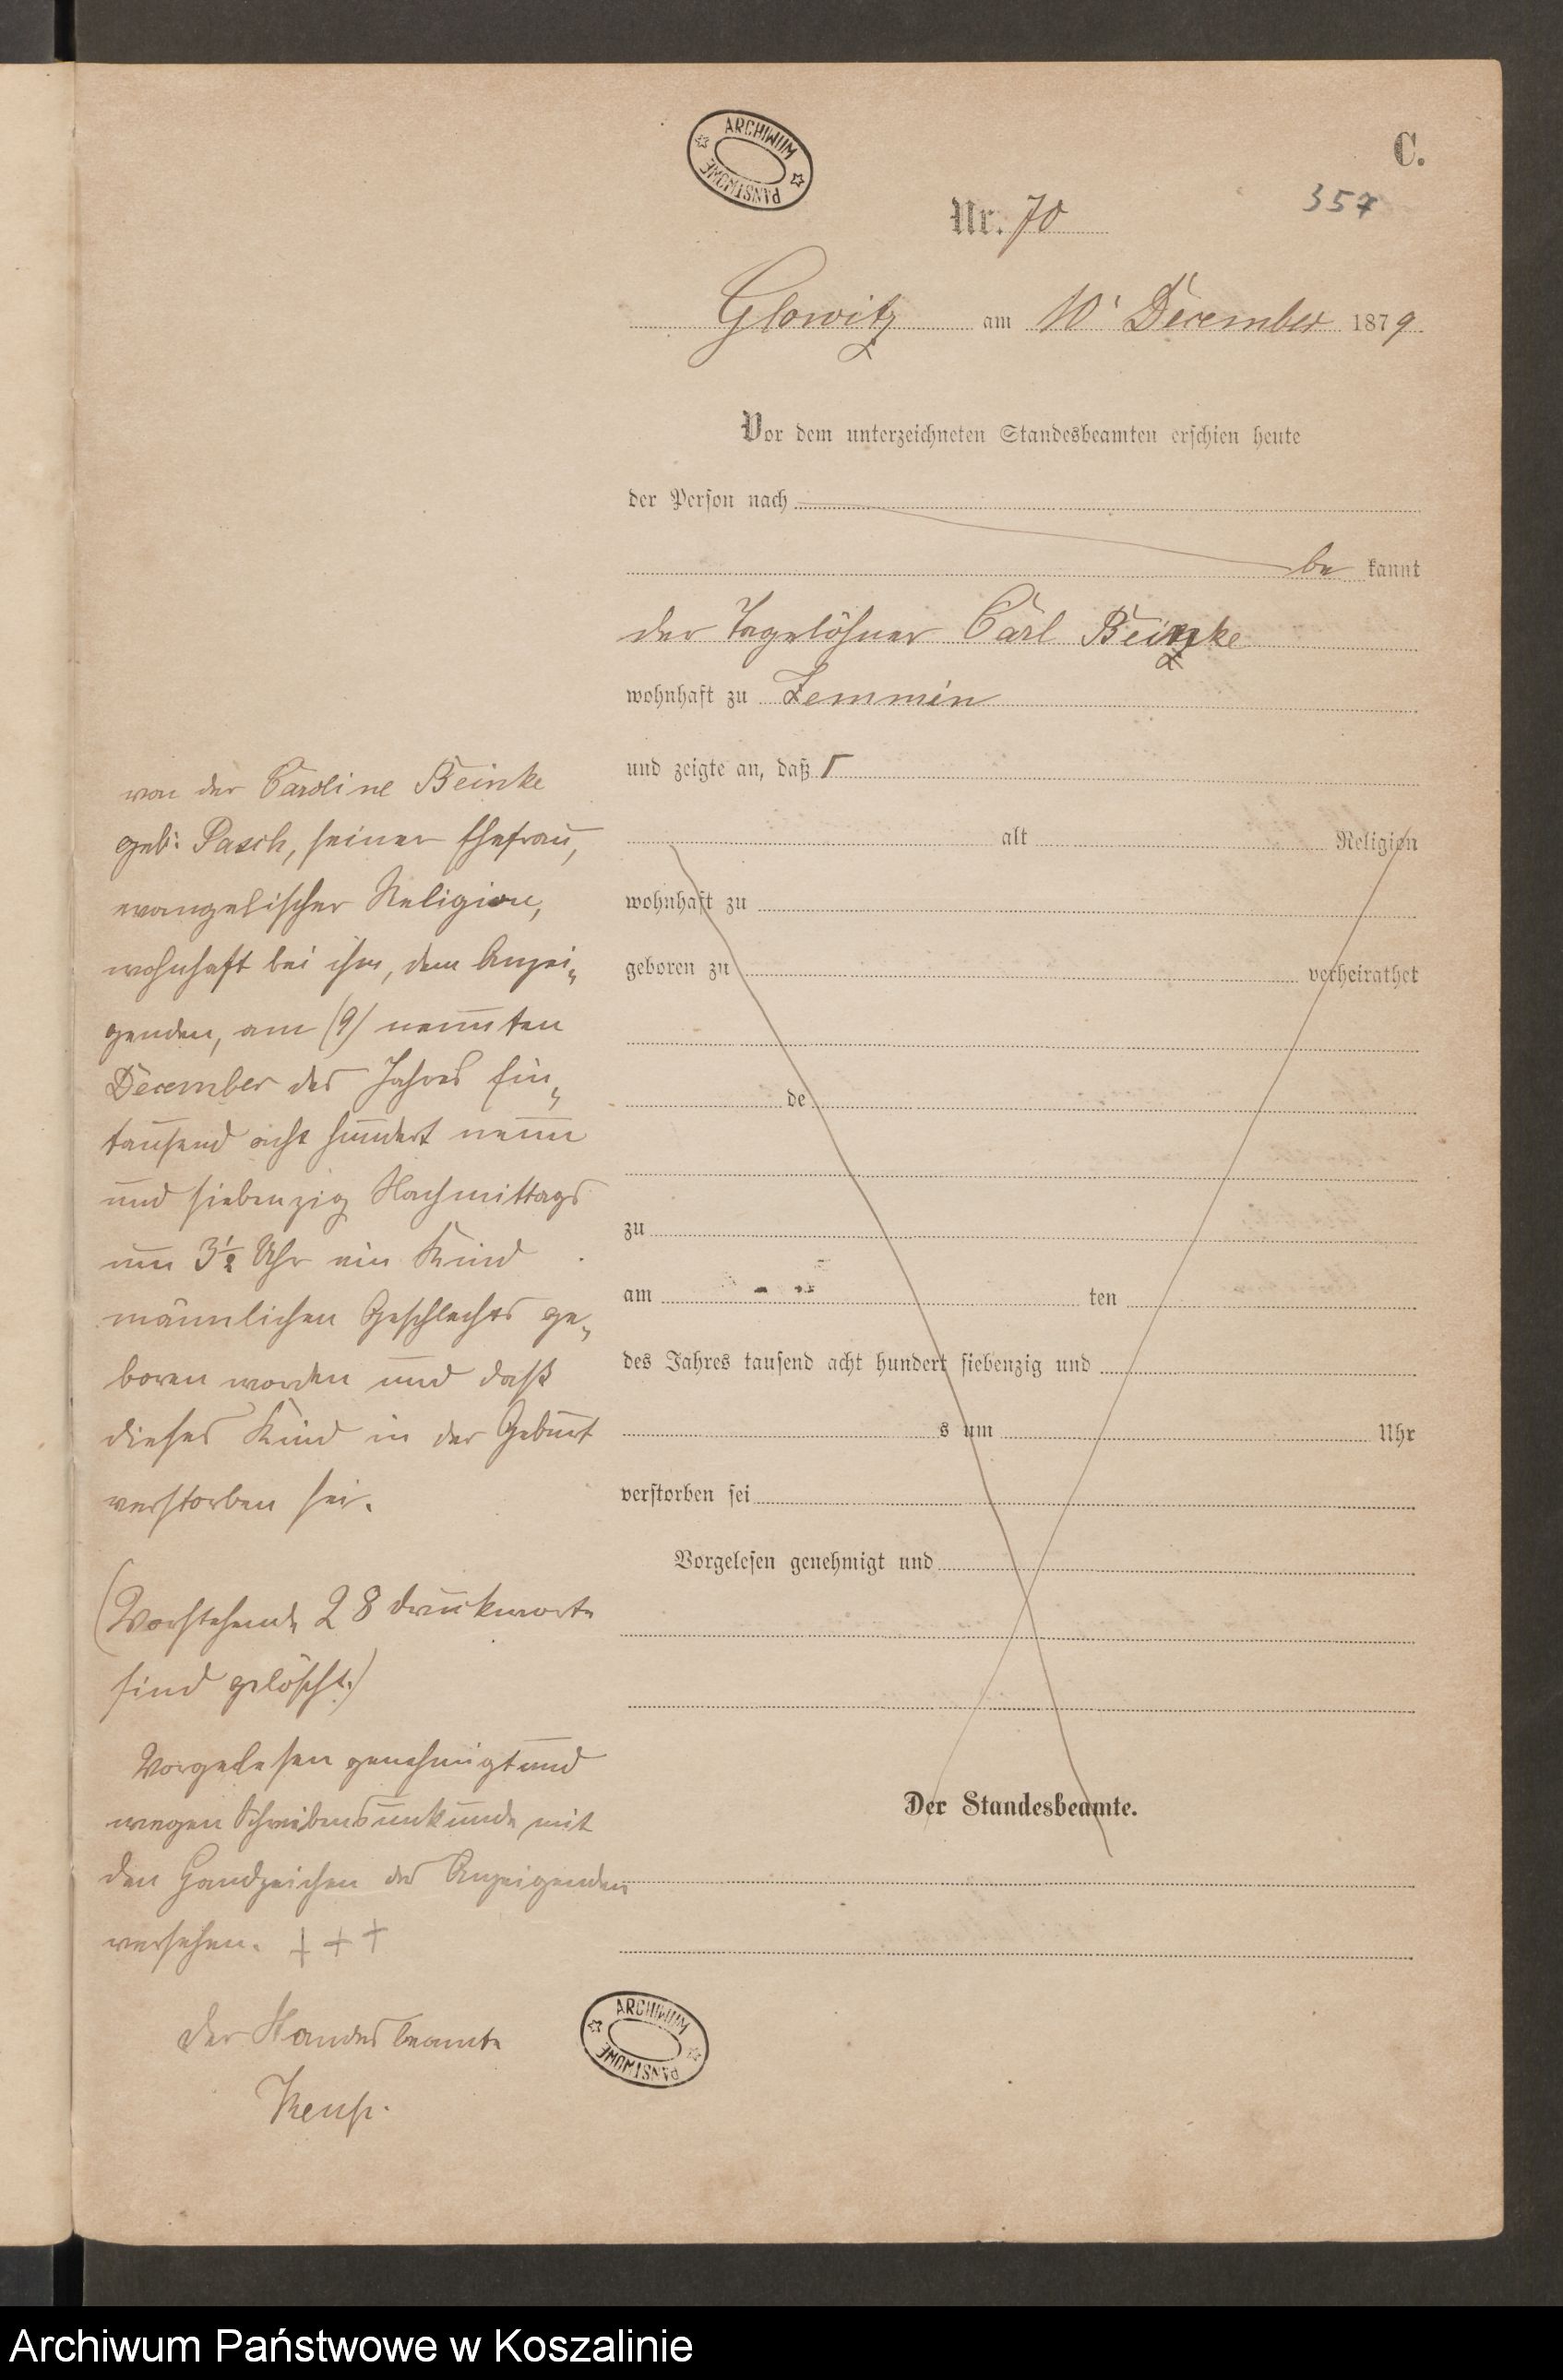 ARCHIWUM PAŃSTWOWE
C.
357
Nr. 70
Glowitz am 10' December 1879
Vor dem unterzeichneten Standesbeamten erschien heute
der Person nach
be kannt
der Tagelöhner Carl Beinke
wohnhaft zu Zemmin
und zeigte an, daß Γ
alt Religion
wohnhaft zu
geboren zu verheirathet
de
zu
am ten
des Jahres tausend acht hundert siebenzig und
s um Uhr
verstorben sei
Vorgelesen genehmigt und
Der Standesbeamte.
von der Caroline Beinke
geb: Pasch, seiner Ehefrau,
evangelischer Religion,
wohnhaft bei ihm, dem Anzei„
genden, am (9) neunten
December des Jahres Ein„
tausend acht hundert neun
und siebenzig Nachmittags
um 3½ Uhr ein Kind
männlichen Geschlechts ge„
boren worden und daß
dieses Kind in der Geburt
verstorben sei.
(Vorstehende 28 Druckworte
sind gelöscht.)
Vorgelesen genehmigt und
wegen Schreibensunkunde mit
den Handzeichen des Anzeigenden
versehen. + + +
Der Standesbeamte
ARCHIWUM PAŃSTWOWE
Archiwum Państwowe w Koszalinie